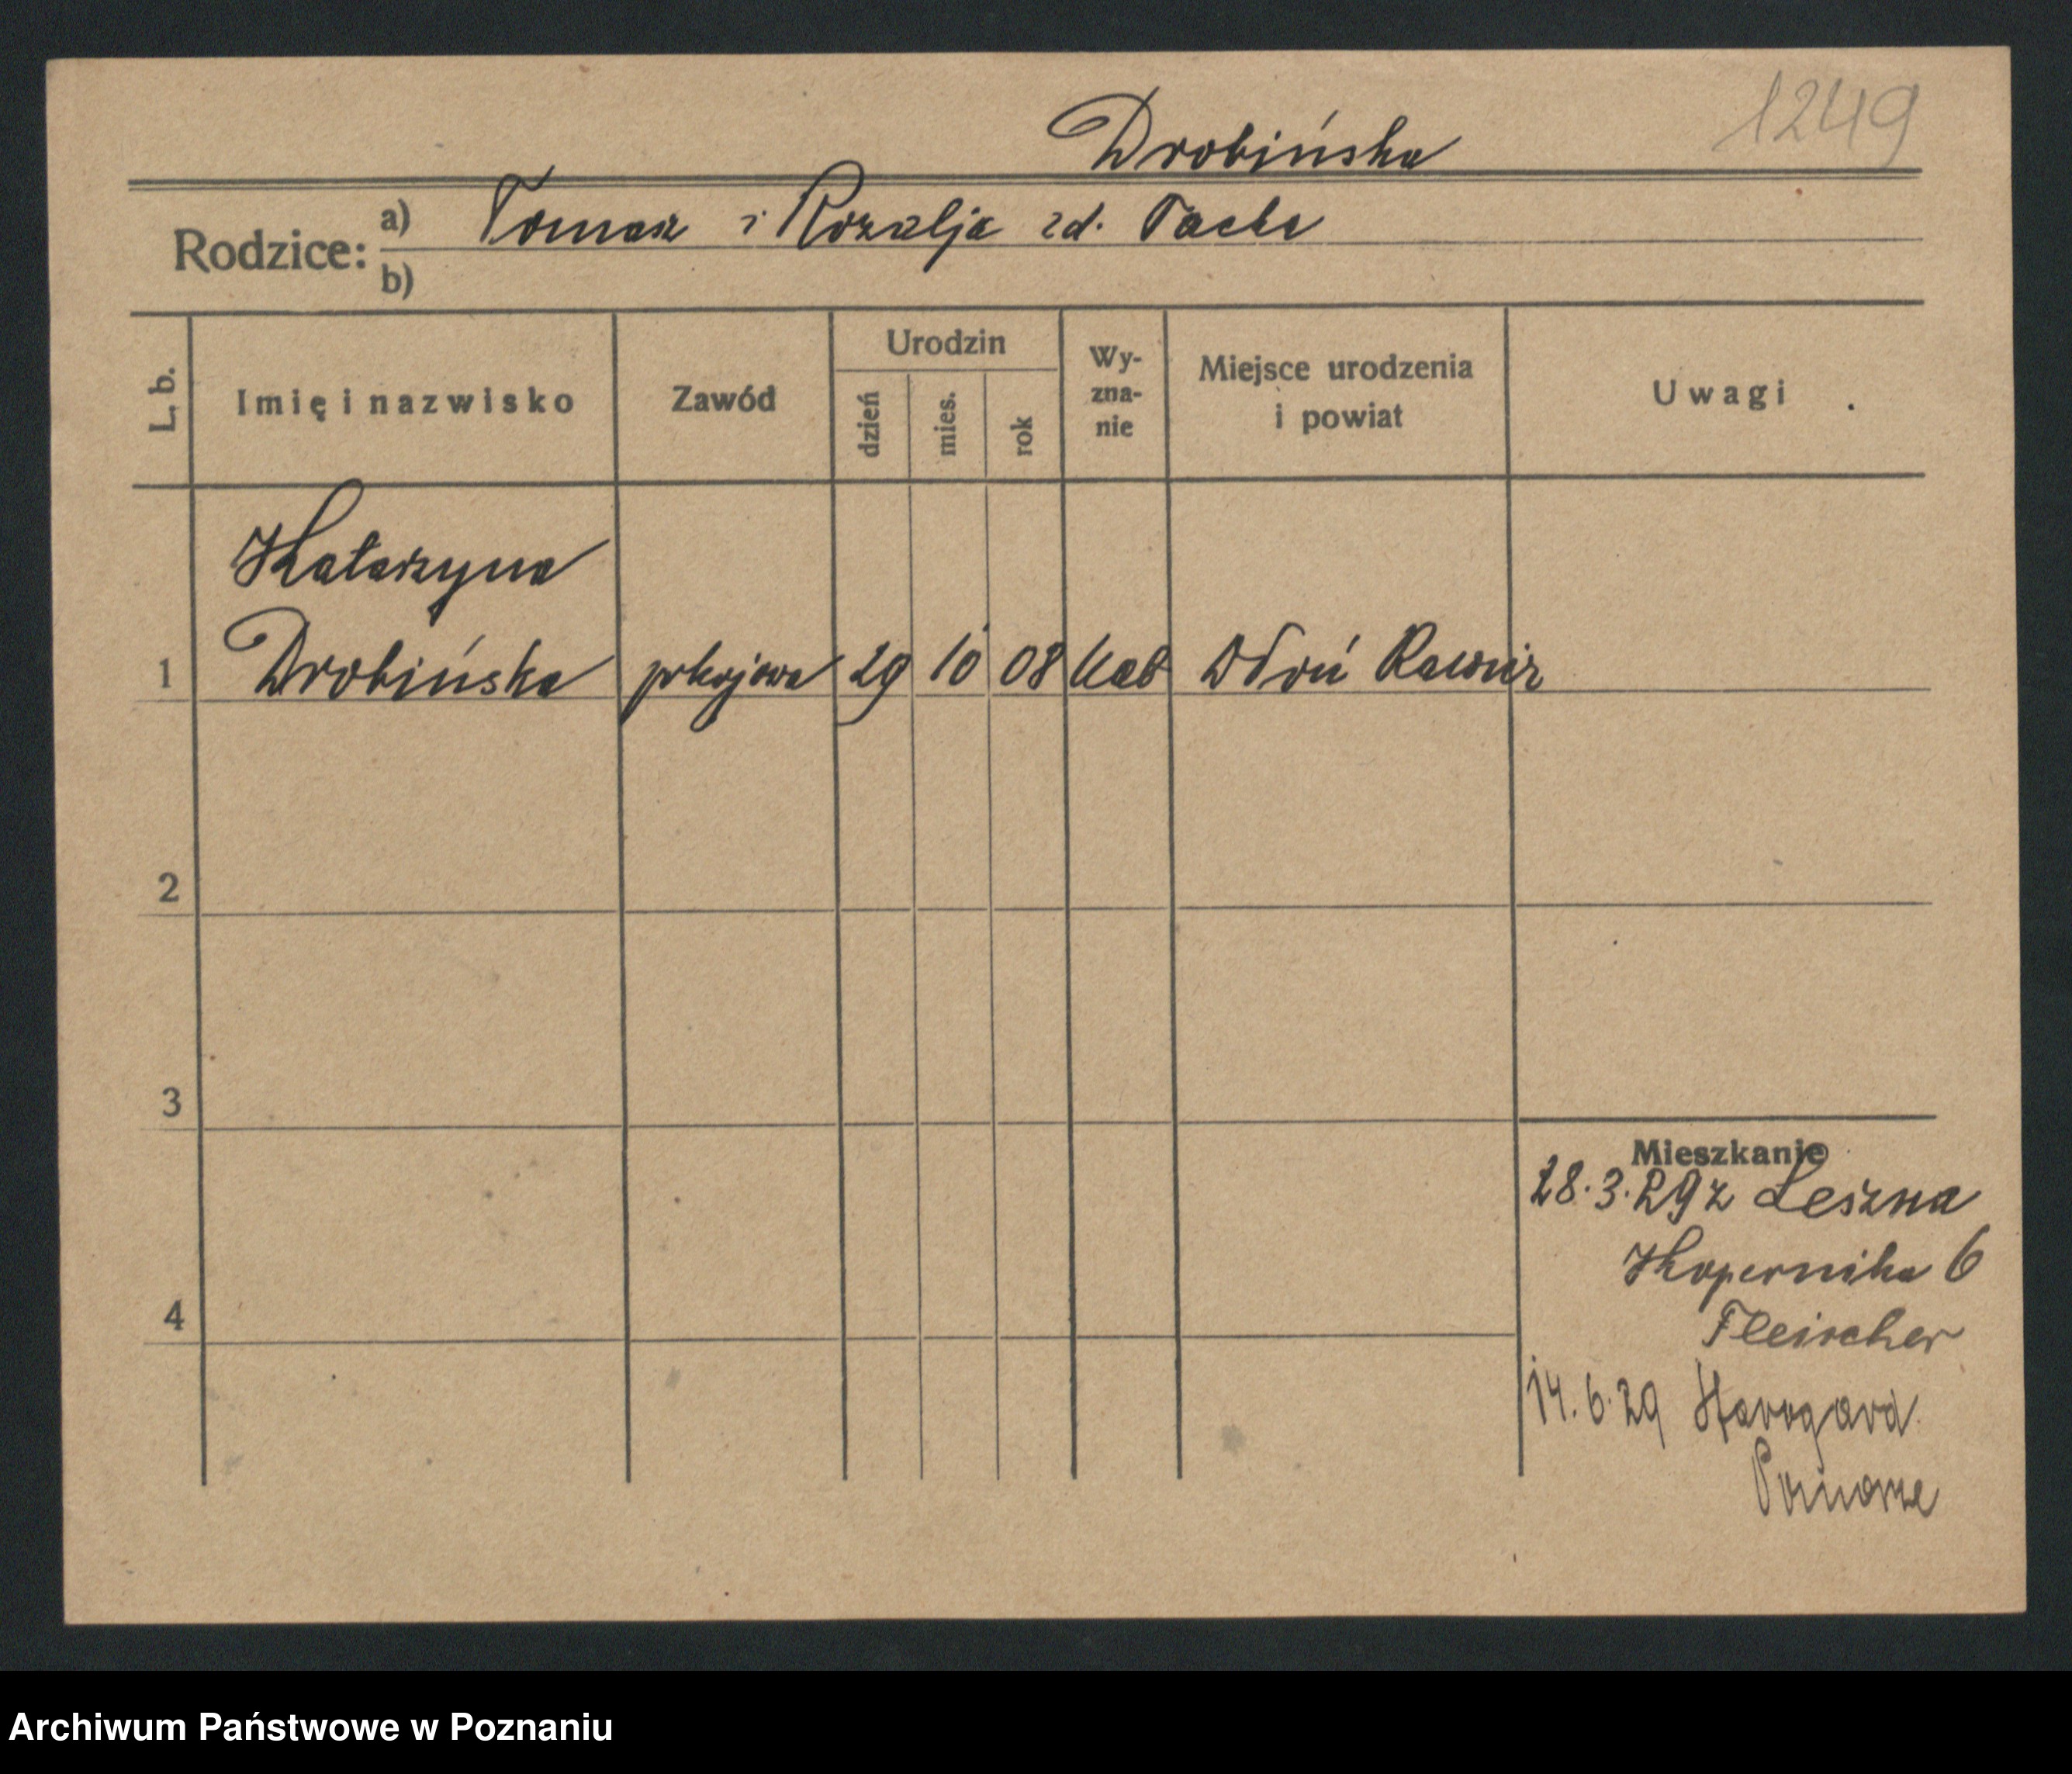 1249
Drobińska
Rodzice: a) Tomasz i Rozalja zd. Tacka
b)
L. b. Imię i nazwisko Zawód Urodzin dzień mies. rok Wy-zna-nie Miejsce urodzenia i powiat Uwagi
Katarzyna
1 Drobińska pokojowa 29 10 08 kat Rawicz
2
3
4
Mieszkanie
28.3.29 z Leszna
Kopernika 6
Fleischer
14.6.29 Starogard
Pomorze
Archiwum Państwowe w Poznaniu